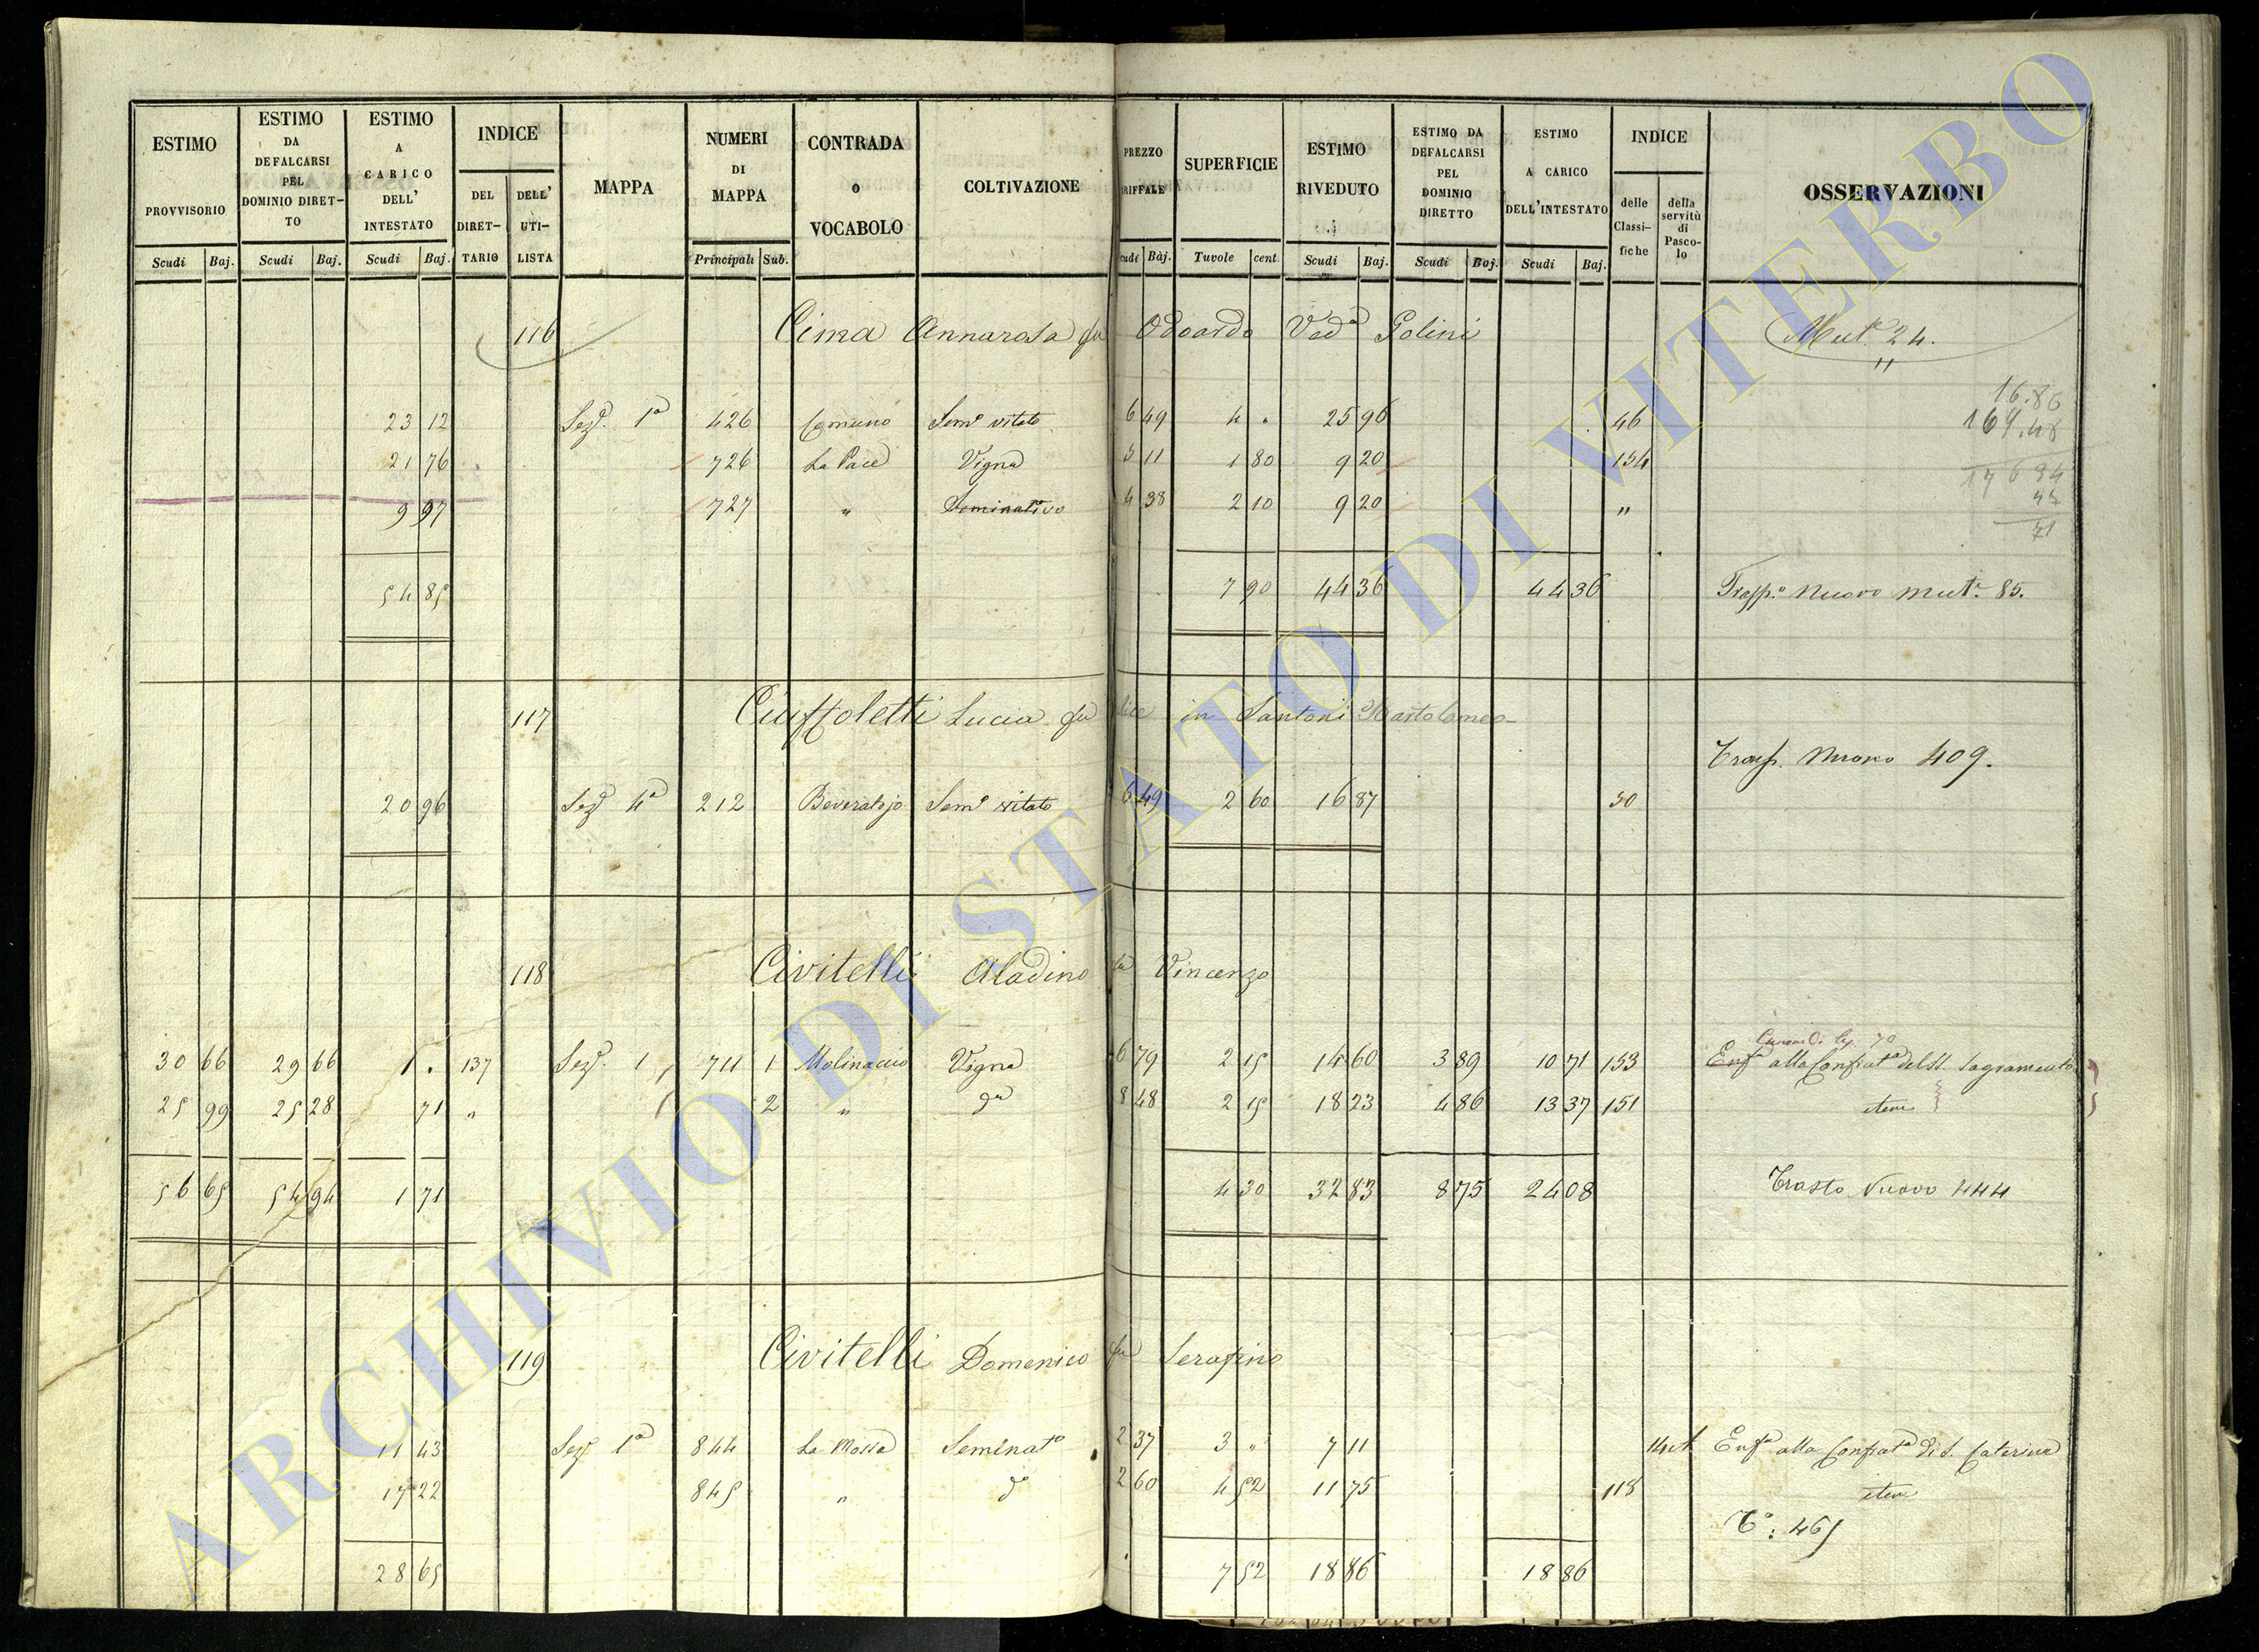 ESTIMO PROVVISORIO
ESTIMO DA DEFALCARSI PEL DOMINIO DIRET-TO
ESTIMO A CARICO DELL' INTESTATO
INDICE
DEL DIRET-TARIO
DELL' UTI-LISTA
MAPPA
NUMERI DI MAPPA
CONTRADA O VOCABOLO
COLTIVAZIONE
PREZZO RIFFALE
SUPERFICIE
ESTIMO RIVEDUTO
ESTIMO DA DEFALCARSI PEL DOMINIO DIRETTO
ESTIMO A CARICO DELL'INTESTATO
INDICE
delle Classi-fiche
della servitù di Pasco-lo
OSSERVAZIONI
Scudi Baj. Scudi Baj. Scudi Baj. Principali Sub. cudi Baj. Tavole cent. Scudi Baj. Scudi Baj. Scudi Baj.
116 Cima Annarosa fu Odoardo Ved.a Golini Mut.e 24.
"
16.86
23 12 Sez. 1a 426 Comuno Sem.o vitato 6 49 4 . 25 96 46 164.48
21 76 726 La Pace Vigna 5 11 1 80 9 20 154
9 97 727 " Seminativo 4 38 2 10 9 20 "
47
71
54 85 7 90 44 36 44 36 Trasp.o Nuovo mut. 85.
117 Ciuffoletti Lucia fu lice in Santoni Bartolomeo
Trasp. Nuovo 409.
20 96 Sez. 4a 212 Beveratojo Sem.o vitato 6 49 2 60 16 87 50
118 Civitelli Aladino fu Vincenzo
30 66 29 66 1 . 137 Sez. 1 711 1 Molinaccio Vigna 6 79 2 15 14 60 3 89 10 71 153 Enf.a alla Confrat.a del SS. Sagramento
25 99 25 28 71 " 2 " d.a 8 48 2 15 18 23 4 86 13 37 151 item
56 65 54 94 1 71 4 30 32 83 8 75 24 08 Trasto Nuovo 444
119 Civitelli Domenico fu Serafino
11 43 Sez. 1a 844 La Mossa Seminat.o 2 37 3 " 7 11 Enf.a alla Confrat.a di S. Caterina
17 22 845 " d.o 2 60 4 52 11 75 118 item
T.o: 465
28 65 7 52 18 86 18 86
ARCHIVIO DI STATO DI VITERBO